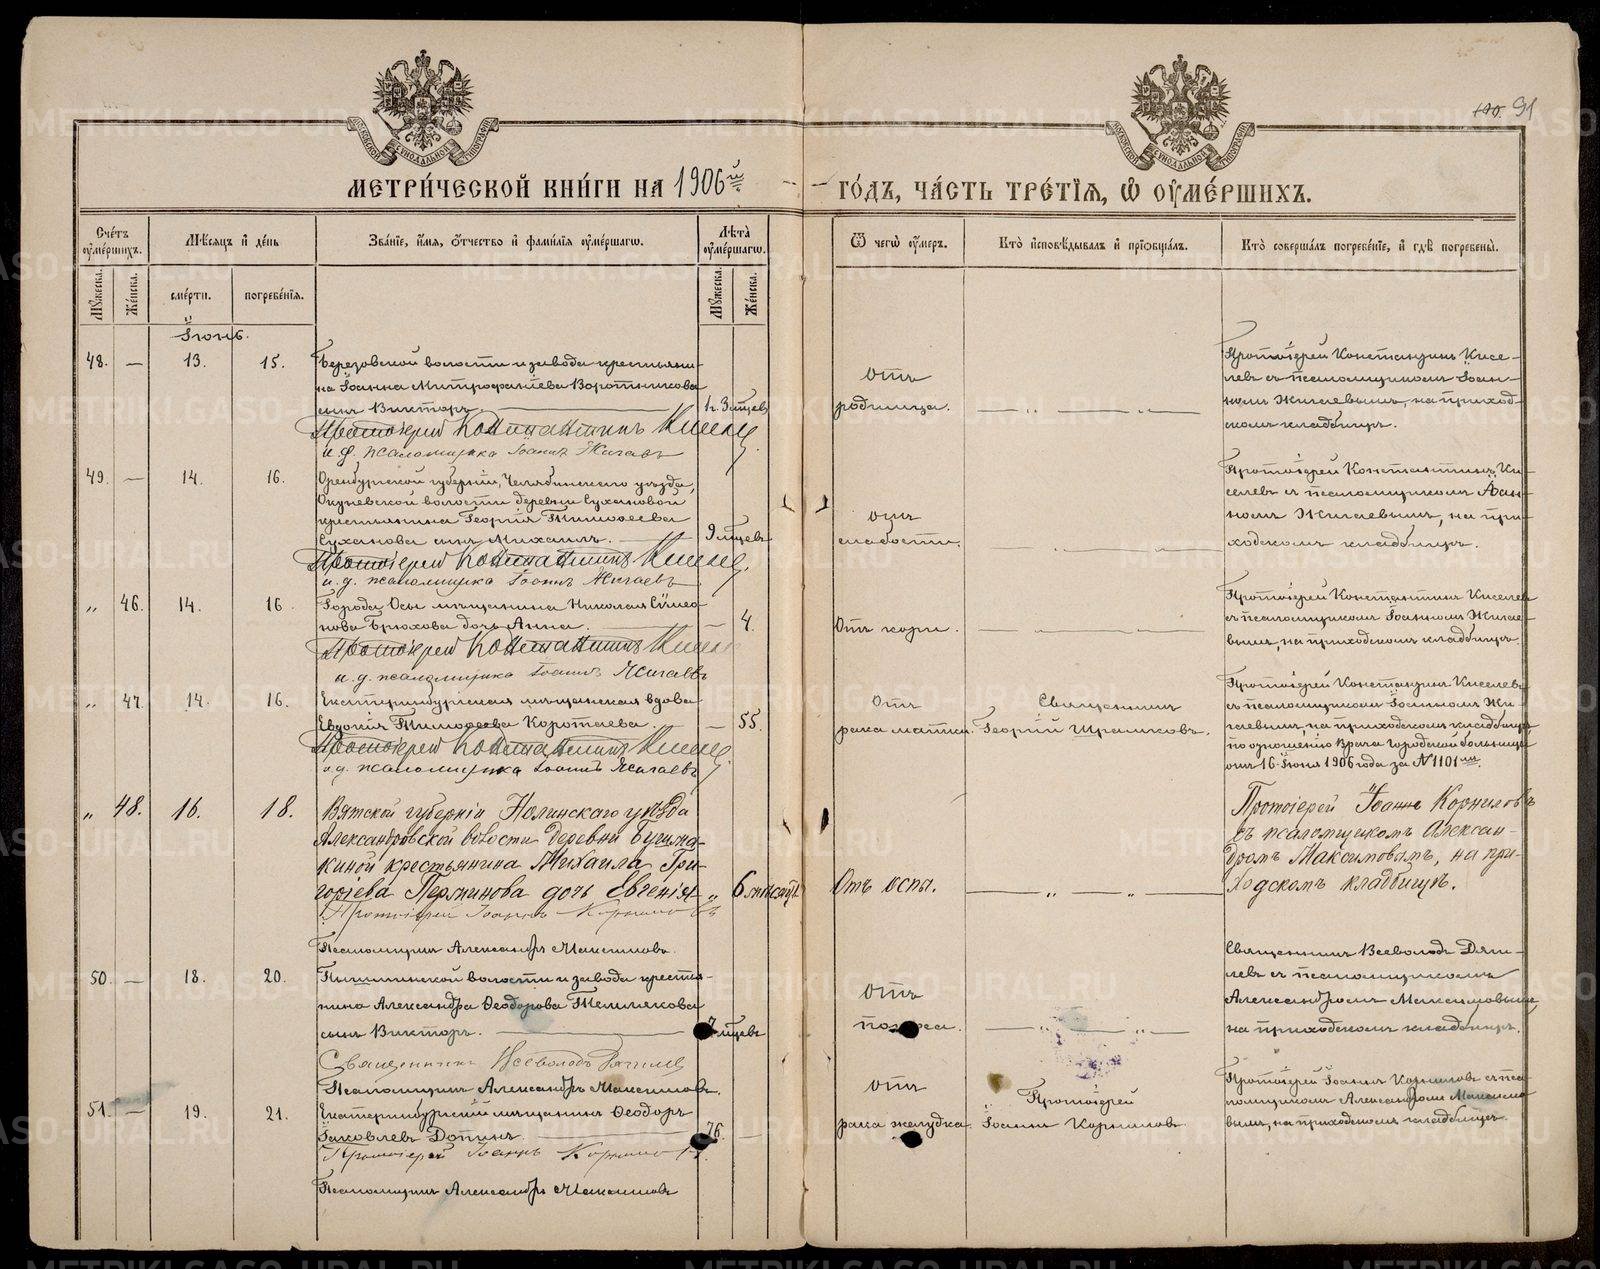 МЕТРИ́ЧЕСКОЙ КНИ́ГИ НА 1906й
ГО́ДЪ, ЧА́СТЬ ТРЕ́ТІѦ, Ѡ ОУ҆МЕ́РШИХЪ.
91
МОСКОВСКОЙ СѴНОДАЛЬНОЙ ТИПОГРАФІИ
МОСКОВСКОЙ СѴНОДАЛЬНОЙ ТИПОГРАФІИ
Сче́тъ оу҆ме́ршихъ.
Мѣ́сяцъ и҆ де́нь
Зва́нїе, и҆́мѧ, ѻ҆́тчество и҆ фами́лїѧ оу҆ме́ршагѡ.
Лѣ́та оу҆ме́ршагѡ.
Ѿ чегѡ̀ оу҆́меръ.
Кто̀ и҆сповѣ́дывалъ и҆ прїѡбща́лъ.
Кто̀ соверша́лъ погребе́нїе, и҆ гдѣ̀ погребены̀.
Мꙋ́жеска.
Же́нска.
сме́рти.
погребе́нїѧ.
Мꙋ́жеска.
Же́нска.
Іюнь.
48. — 13. 15.
Березовской волости и завода крестьяни-
на Іоанна Митрофаніева Воротникова
сынъ Викторъ. 1 г. 3 мѣсцевъ
Протоіерей Константинъ Киселевъ
и. д. псаломщика Іоаннъ Жигаевъ
Отъ
родимца.
Протоіерей Константинъ Кисе-
левъ съ псаломщикомъ Іоан-
номъ Жигаевымъ, на приход-
скомъ кладбищѣ.
49. — 14. 16.
Оренбургской губерніи, Челябинскаго уѣзда,
Окуневской волости деревни Сухановой
крестьянина Георгія Тимоѳеева
Суханова сынъ Михаилъ. 9 мѣсцевъ
Протоіерей Константинъ Киселевъ
и. д. псаломщика Іоаннъ Жигаевъ
отъ
слабости.
Протоіерей Константинъ Ки-
селевъ съ псаломщикомъ Іоан-
номъ Жигаевымъ, на при-
ходскомъ кладбищѣ.
„ 46. 14. 16
Города Осы мѣщанина Николая Сѵмео-
нова Брюхова дочь Анна. — 4.
Протоіерей Константинъ Киселевъ
и. д. псаломщика Іоаннъ Жигаевъ
Отъ кори.
Протоіерей Константинъ Киселевъ
съ псаломщикомъ Іоанномъ Жигае-
вымъ, на приходскомъ кладбищѣ.
„ 47. 14. 16.
Екатеринбургская мѣщанская вдова
Евдокія Тимоѳеева Коротаева. — 55.
Протоіерей Константинъ Киселевъ
и. д. псаломщика Іоаннъ Жигаевъ
Отъ
рака матки.
Священникъ
Георгій
Протоіерей Константинъ Киселевъ
съ псаломщикомъ Іоанномъ Жи-
гаевымъ, на приходскомъ кладбищѣ,
по отношенію Врача Городской больницы
отъ 16 Іюня 1906 года за № 1101мъ.
„ 48. 16. 18.
Вятской губерніи Нолинскаго уѣзда
Александровской волости деревни
крестьянина Михаила Гри-
горіева Перминова дочь Евгенія „ 6 мѣсяцъ
Протоіерей Іоаннъ Корниловъ
Псаломщикъ Александръ Максимовъ.
Отъ оспы.
Протоіерей Іоаннъ Корниловъ
съ псаломщикомъ Алексан-
дромъ Максимовымъ, на при-
ходскомъ кладбищѣ.
50. — 18. 20.
Пышминской волости и завода крестья-
нина Александра Ѳеодорова
сынъ Викторъ. 7 мѣсцевъ
Священникъ Всеволодъ
Псаломщикъ Александръ Максимовъ.
отъ
поноса.
Священникъ Всеволодъ
съ псаломщикомъ
Александромъ Максимовымъ,
на приходскомъ кладбищѣ.
51. — 19. 21.
Екатеринбургскій мѣщанинъ Ѳеодоръ
Іаковлевъ 76. —
Протоіерей Іоаннъ Корниловъ.
Псаломщикъ Александръ Максимовъ
отъ
рака желудка.
Протоіерей
Іоаннъ Корниловъ.
Протоіерей Іоаннъ Корниловъ съ пса-
ломщикомъ Александромъ Максимо-
вымъ, на приходскомъ кладбищѣ.
METRIKI.GASO-URAL.RU